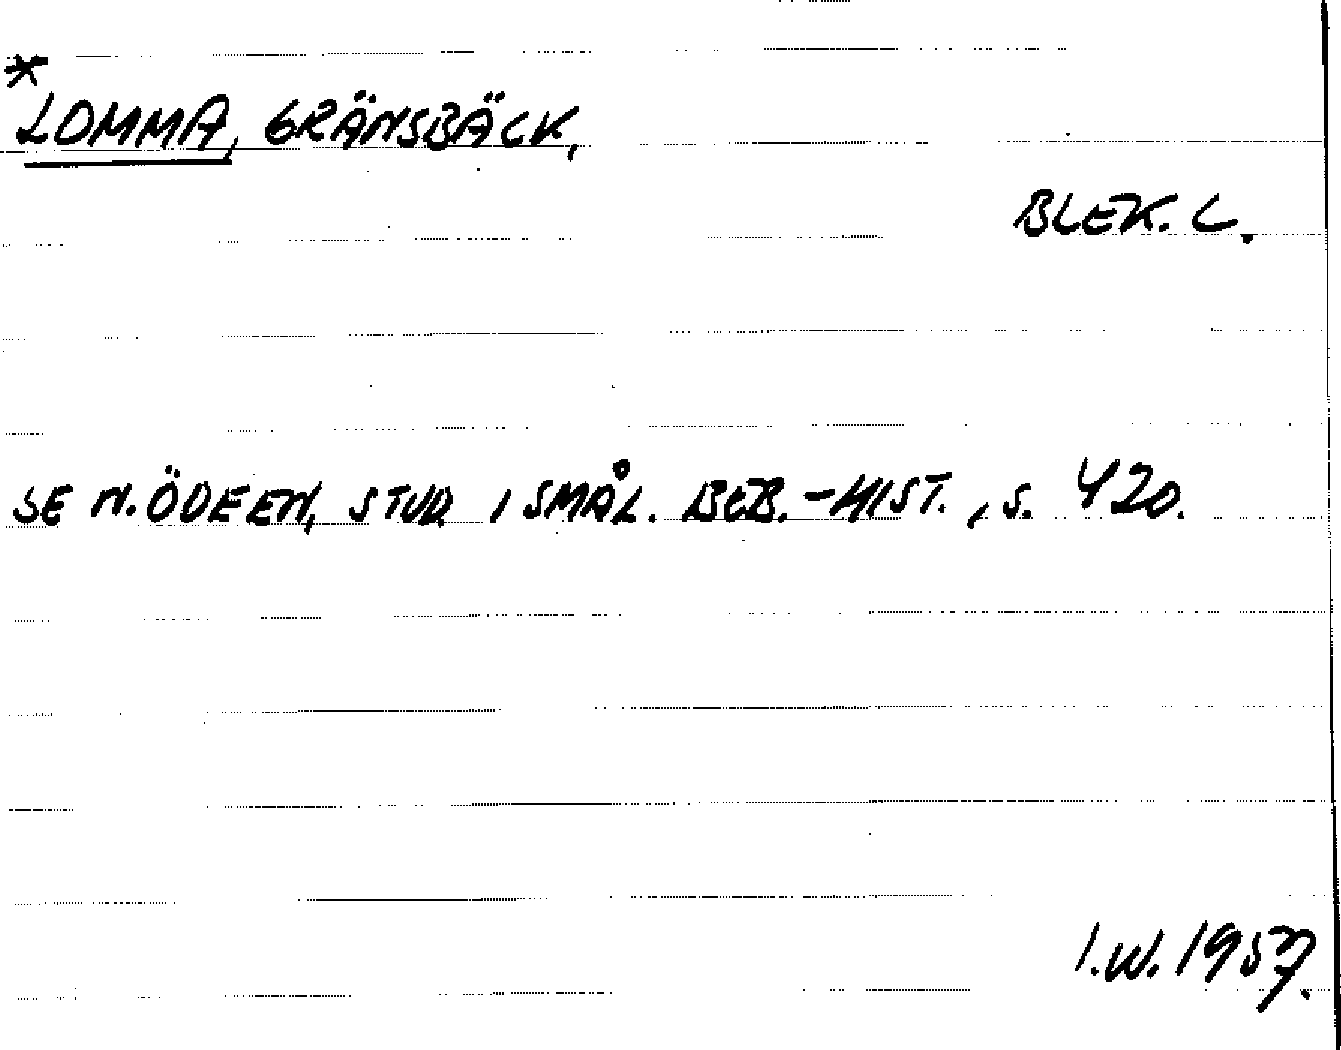 *
LOMMA, GRÄNSBÄCK,
BLEK. L.
SE N. ÖDEEN, STUD. I SMÅL. BEB.-HIST., S. 420.
I.W. 1957.